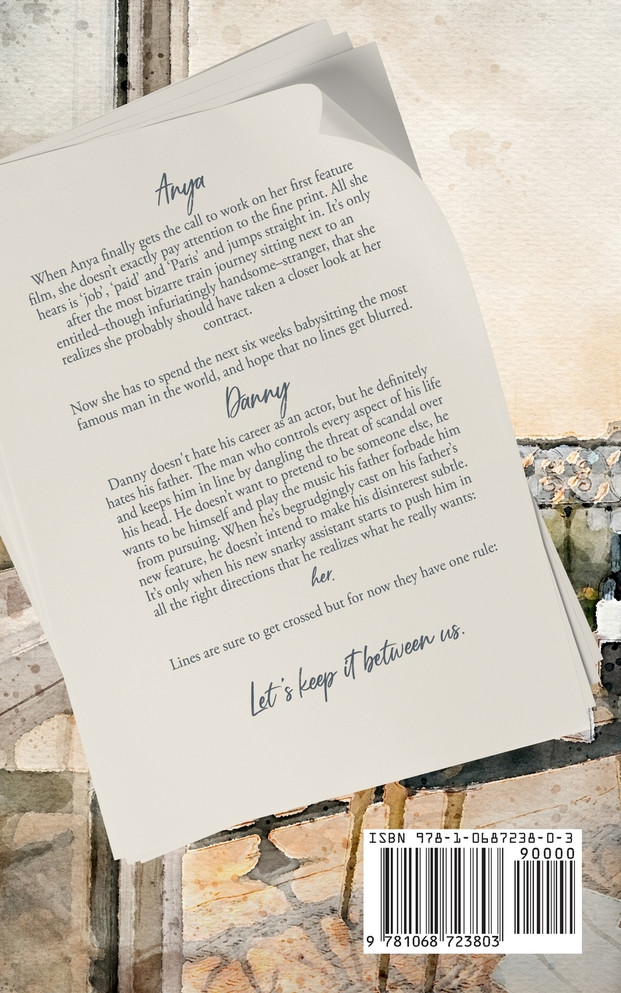 Anya
When Anya finally gets the call to work on her first feature
film, she doesn't exactly pay attention to the fine print. All she
hears is 'job', 'paid' and 'Paris' and jumps straight in. It's only
after the most bizarre train journey sitting next to an
entitled–though infuriatingly handsome–stranger, that she
realizes she probably should have taken a closer look at her
contract.
Now she has to spend the next six weeks babysitting the most
famous man in the world, and hope that no lines get blurred.
Danny
Danny doesn't hate his career as an actor, but he definitely
hates his father. The man who controls every aspect of his life
and keeps him in line by dangling the threat of scandal over
his head. He doesn't want to pretend to be someone else, he
wants to be himself and play the music his father forbade him
from pursuing. When he's begrudgingly cast on his father's
new feature, he doesn't intend to make his disinterest subtle.
It's only when his new snarky assistant starts to push him in
all the right directions that he realizes what he really wants:
her.
Lines are sure to get crossed but for now they have one rule:
Let's keep it between us.
ISBN 978-1-0687238-0-3
90000
9 781068 723803